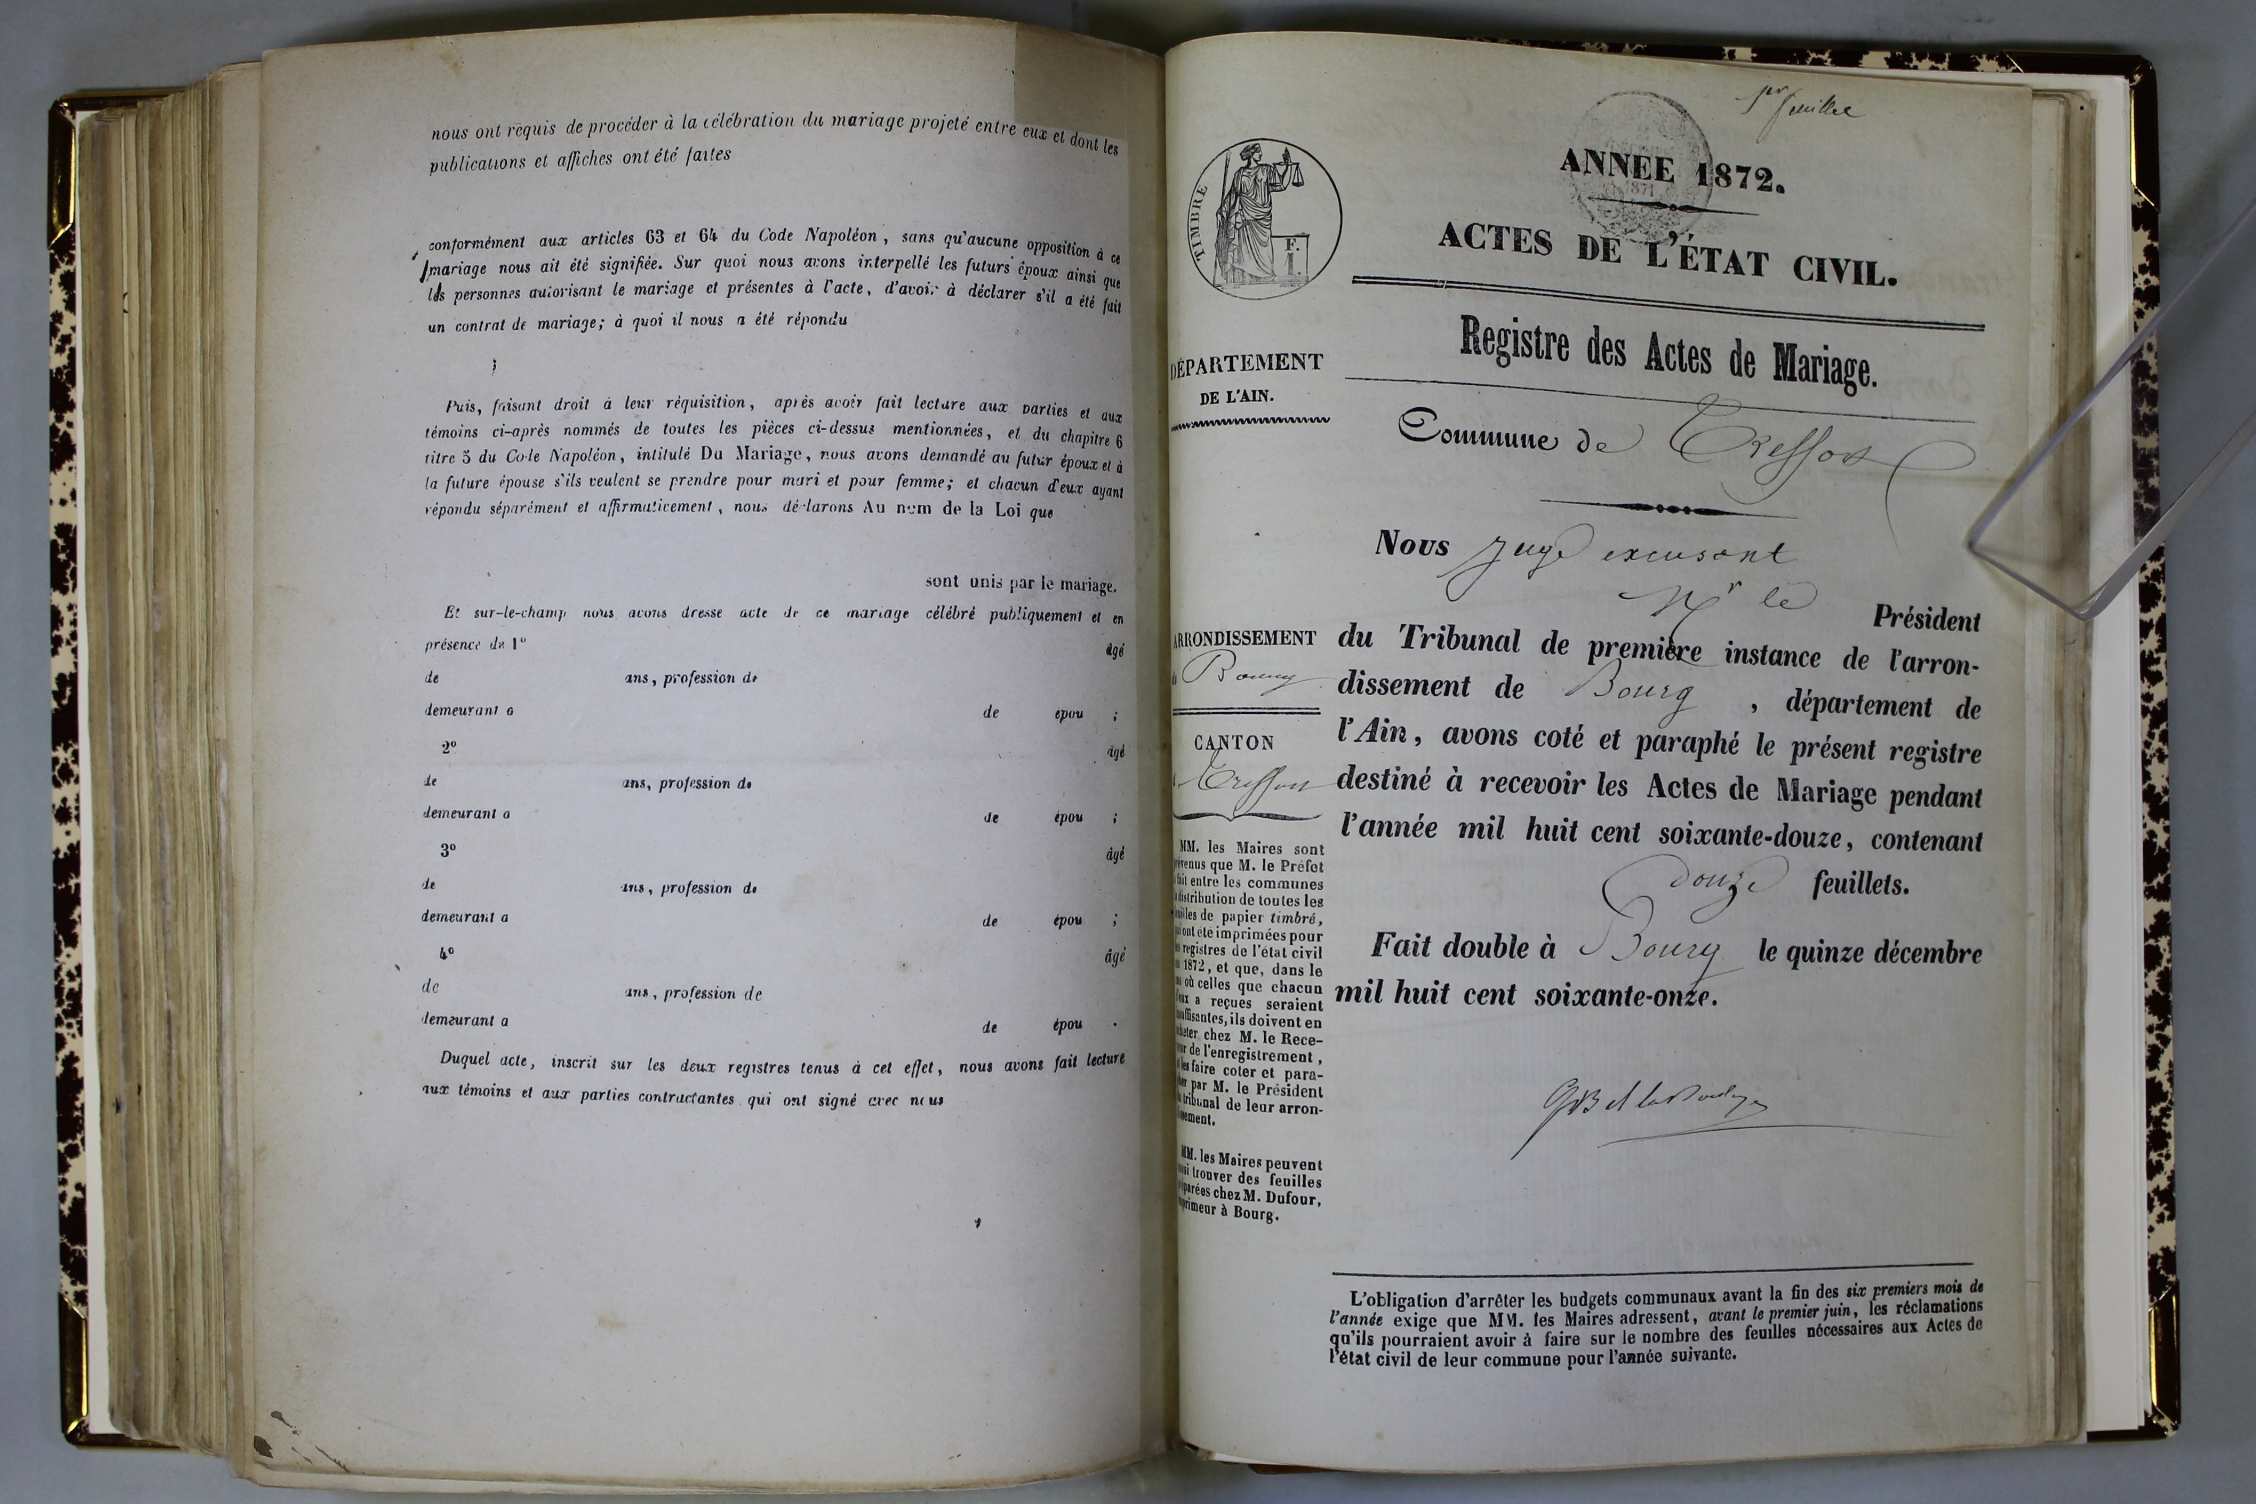 nous ont requis de procéder à la célébration du mariage projeté entre eux et dont les
publications et affiches ont été faites
conformément aux articles 63 et 64 du Code Napoléon, sans qu'aucune opposition à ce
mariage nous ait été signifiée. Sur quoi nous avons interpellé les futurs époux ainsi que
les personnes autorisant le mariage et présentes à l'acte, d'avoir à déclarer s'il a été fait
un contrat de mariage; à quoi il nous a été répondu
;
Puis, faisant droit à leur réquisition, après avoir fait lecture aux parties et aux
témoins ci-après nommés de toutes les pièces ci-dessus mentionnées, et du chapitre 6
titre 5 du Code Napoléon, intitulé Du Mariage, nous avons demandé au futur époux et à
la future épouse s'ils veulent se prendre pour mari et pour femme; et chacun d'eux ayant
répondu séparément et affirmativement, nous déclarons Au nom de la Loi que
sont unis par le mariage.
Et sur-le-champ nous avons dressé acte de ce mariage célébré publiquement et en
présence de 1° âgé
de ans, profession de
demeurant a de épou ;
2° âgé
de ans, profession de
demeurant a de épou ;
3° âgé
de ans, profession de
demeurant a de épou ;
4° âgé
de ans, profession de
demeurant a de épou .
Duquel acte, inscrit sur les deux registres tenus à cet effet, nous avons fait lecture
aux témoins et aux parties contractantes qui ont signé avec nous
1er feuillet
ANNEE 1872.
1871
ACTES DE L'ÉTAT CIVIL.
TIMBRE
F.
I.
Registre des Actes de Mariage.
DÉPARTEMENT
DE L'AIN.
Commune de Treffort
Nous Juge excusant
Mr le
Président
du Tribunal de première instance de l'arron-
dissement de Bourg, département de
l'Ain, avons coté et paraphé le présent registre
destiné à recevoir les Actes de Mariage pendant
l'année mil huit cent soixante-douze, contenant
douze feuillets.
Fait double à Bourg le quinze décembre
mil huit cent soixante-onze.
ARRONDISSEMENT
Bourg
CANTON
Treffort
MM. les Maires sont
prévenus que M. le Préfet
fait entre les communes
distribution de toutes les
feuilles de papier timbré,
qui ont été imprimées pour
les registres de l'état civil
1872, et que, dans le
cas où celles que chacun
d'eux a reçues seraient
insuffisantes, ils doivent en
acheter chez M. le Rece-
veur de l'enregistrement,
les faire coter et para-
pher par M. le Président
du tribunal de leur arron-
dissement.
MM. les Maires peuvent
aussi trouver des feuilles
préparées chez M. Dufour,
imprimeur à Bourg.
L'obligation d'arrêter les budgets communaux avant la fin des six premiers mois de
l'année exige que MM. les Maires adressent, avant le premier juin, les réclamations
qu'ils pourraient avoir à faire sur le nombre des feuilles nécessaires aux Actes de
l'état civil de leur commune pour l'année suivante.